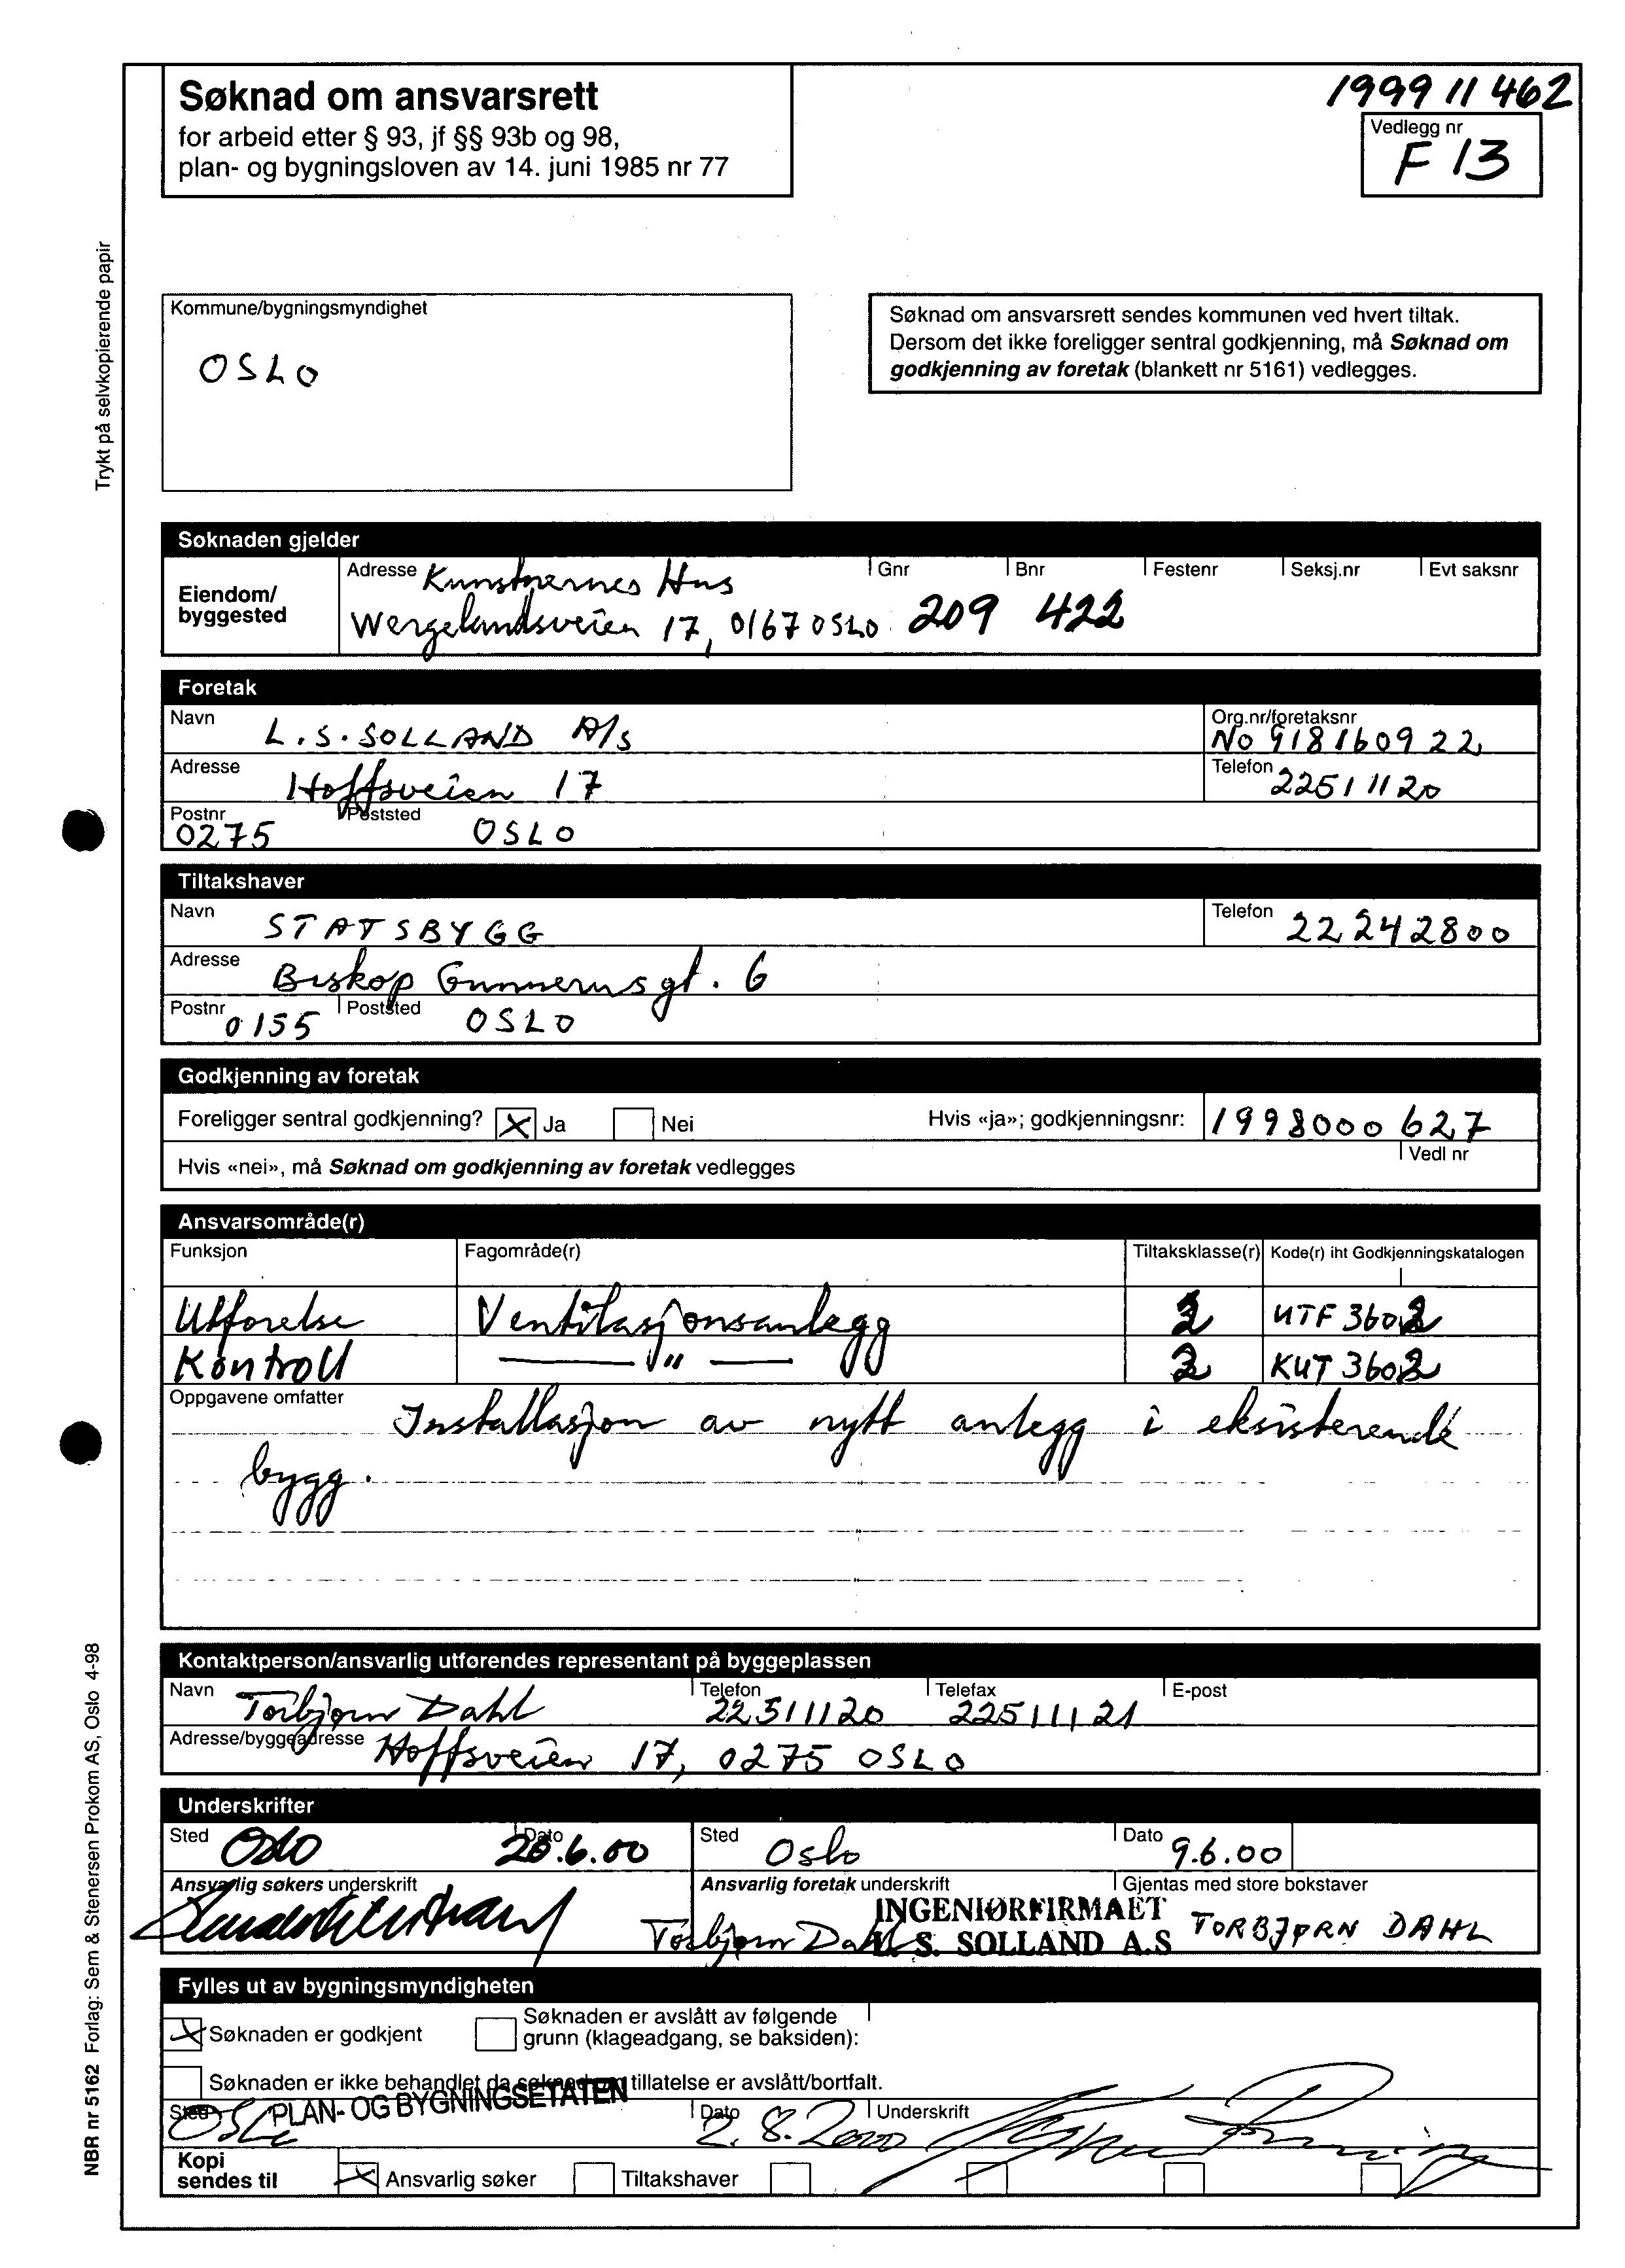 Søknad om ansvarsrett
for arbeid etter § 93, jf §§ 93b og 98,
plan- og bygningsloven av 14. juni 1985 nr 77
1999 11 462
Vedlegg nr
F 13
Trykt på selvkopierende papir
Kommune/bygningsmyndighet
OSLO
Søknad om ansvarsrett sendes kommunen ved hvert tiltak.
Dersom det ikke foreligger sentral godkjenning, må Søknad om
godkjenning av foretak (blankett nr 5161) vedlegges.
Søknaden gjelder
Eiendom/
byggested
Adresse Kunstnernes Hus
Wergelandsveien 17, 0167 OSLO
Gnr Bnr Festenr Seksj.nr Evt saksnr
209 422
Foretak
Navn L.S. SOLLAND A/S
Org.nr/foretaksnr
No 918160922
Adresse Hoffsveien 17
Telefon 22511120
Postnr Poststed
0275 OSLO
Tiltakshaver
Navn STATSBYGG
Telefon 22242800
Adresse Biskop Gunnerusgt. 6
Postnr 0155 Poststed OSLO
Godkjenning av foretak
Foreligger sentral godkjenning? X Ja Nei Hvis «ja»; godkjenningsnr: 1998000627
Hvis «nei», må Søknad om godkjenning av foretak vedlegges
Vedl nr
Ansvarsområde(r)
Funksjon Fagområde(r) Tiltaksklasse(r) Kode(r) iht Godkjenningskatalogen
Utførelse Ventilasjonsanlegg 2 UTF 3602
Kontroll — " — 2 KUT 3602
Oppgavene omfatter
Installasjon av nytt anlegg i eksisterende
bygg.
Kontaktperson/ansvarlig utførendes representant på byggeplassen
Navn Torbjørn Dahl
Telefon 22511120
Telefax 22511121
E-post
Adresse/byggeadresse Hoffsveien 17, 0275 OSLO
Underskrifter
Sted Oslo Dato 20.6.00 Sted Oslo Dato 9.6.00
Ansvarlig søkers underskrift Ansvarlig foretak underskrift Gjentas med store bokstaver
Torbjørn Dahl
INGENIØRFIRMAET
L. S. SOLLAND A.S
TORBJØRN DAHL
Fylles ut av bygningsmyndigheten
X Søknaden er godkjent
Søknaden er avslått av følgende
grunn (klageadgang, se baksiden):
Søknaden er ikke behandlet da søknad om tillatelse er avslått/bortfalt.
Sted Oslo PLAN- OG BYGNINGSETATEN
Dato 2.8.2000
Underskrift
Kopi
sendes til
X Ansvarlig søker Tiltakshaver
NBR nr 5162 Forlag: Sem & Stenersen Prokom AS, Oslo 4-98